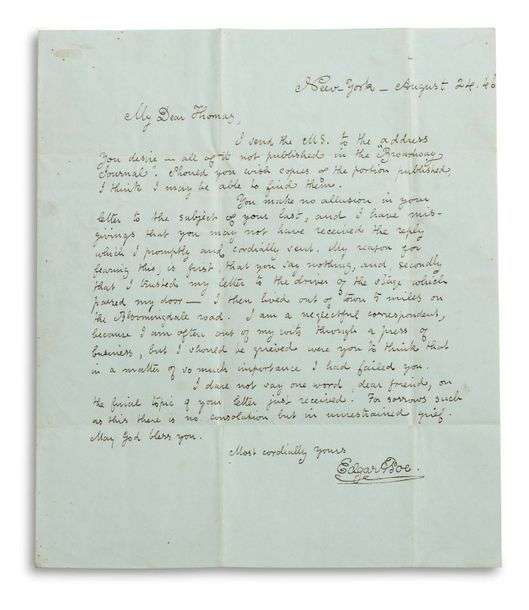 New York – August 24. 45
My Dear Thomas,
I send the MS. to the address
you desire – all of it not published in the Broadway
Journal. Should you wish copies of the portion published
I think I may be able to find them.
You make no allusion in your
letter to the subject of your last, and I have mis-
givings that you may not have received the reply
which I promptly and cordially sent. My reason for
fearing this, is first that you say nothing, and secondly
that I trusted my letter to the driver of the stage which
passed my door – I then lived out of town 5 miles on
the Bloomingdale road. I am a neglectful correspondent,
because I am often out of my wits through a press of
business, but I should be grieved were you to think that
in a matter of so much importance I had failed you.
I dare not say one word dear friend, on
the final topic of your letter just received. For sorrows such
as this there is no consolation but in unrestrained grief.
May God bless you.
Most cordially Yours
Edgar A Poe.